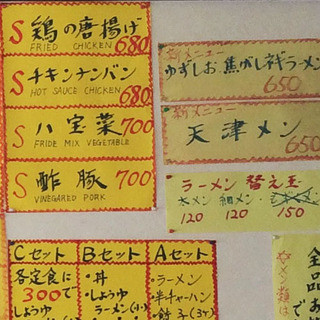 S 鶏の唐揚げ
FRIED CHICKEN 680
S チキンナンバン
HOT SAUCE CHICKEN 680
S 八宝菜 700
FRIDE MIX VEGETABLE
S 酢豚 700
VINEGARED PORK
新メニュー
ゆずしお焦がしネギラーメン
650
新メニュー
天津メン
650
ラーメン 替え玉
太メン 細メン
120 120 150
Cセット
各定食に
300で
しょうゆ
ラーメン(小)
Bセット
・丼
・しょうゆ
ラーメン(小)
Aセット
・ラーメン
・半チャーハン
・餃子(3ケ)
全品お
メン類は